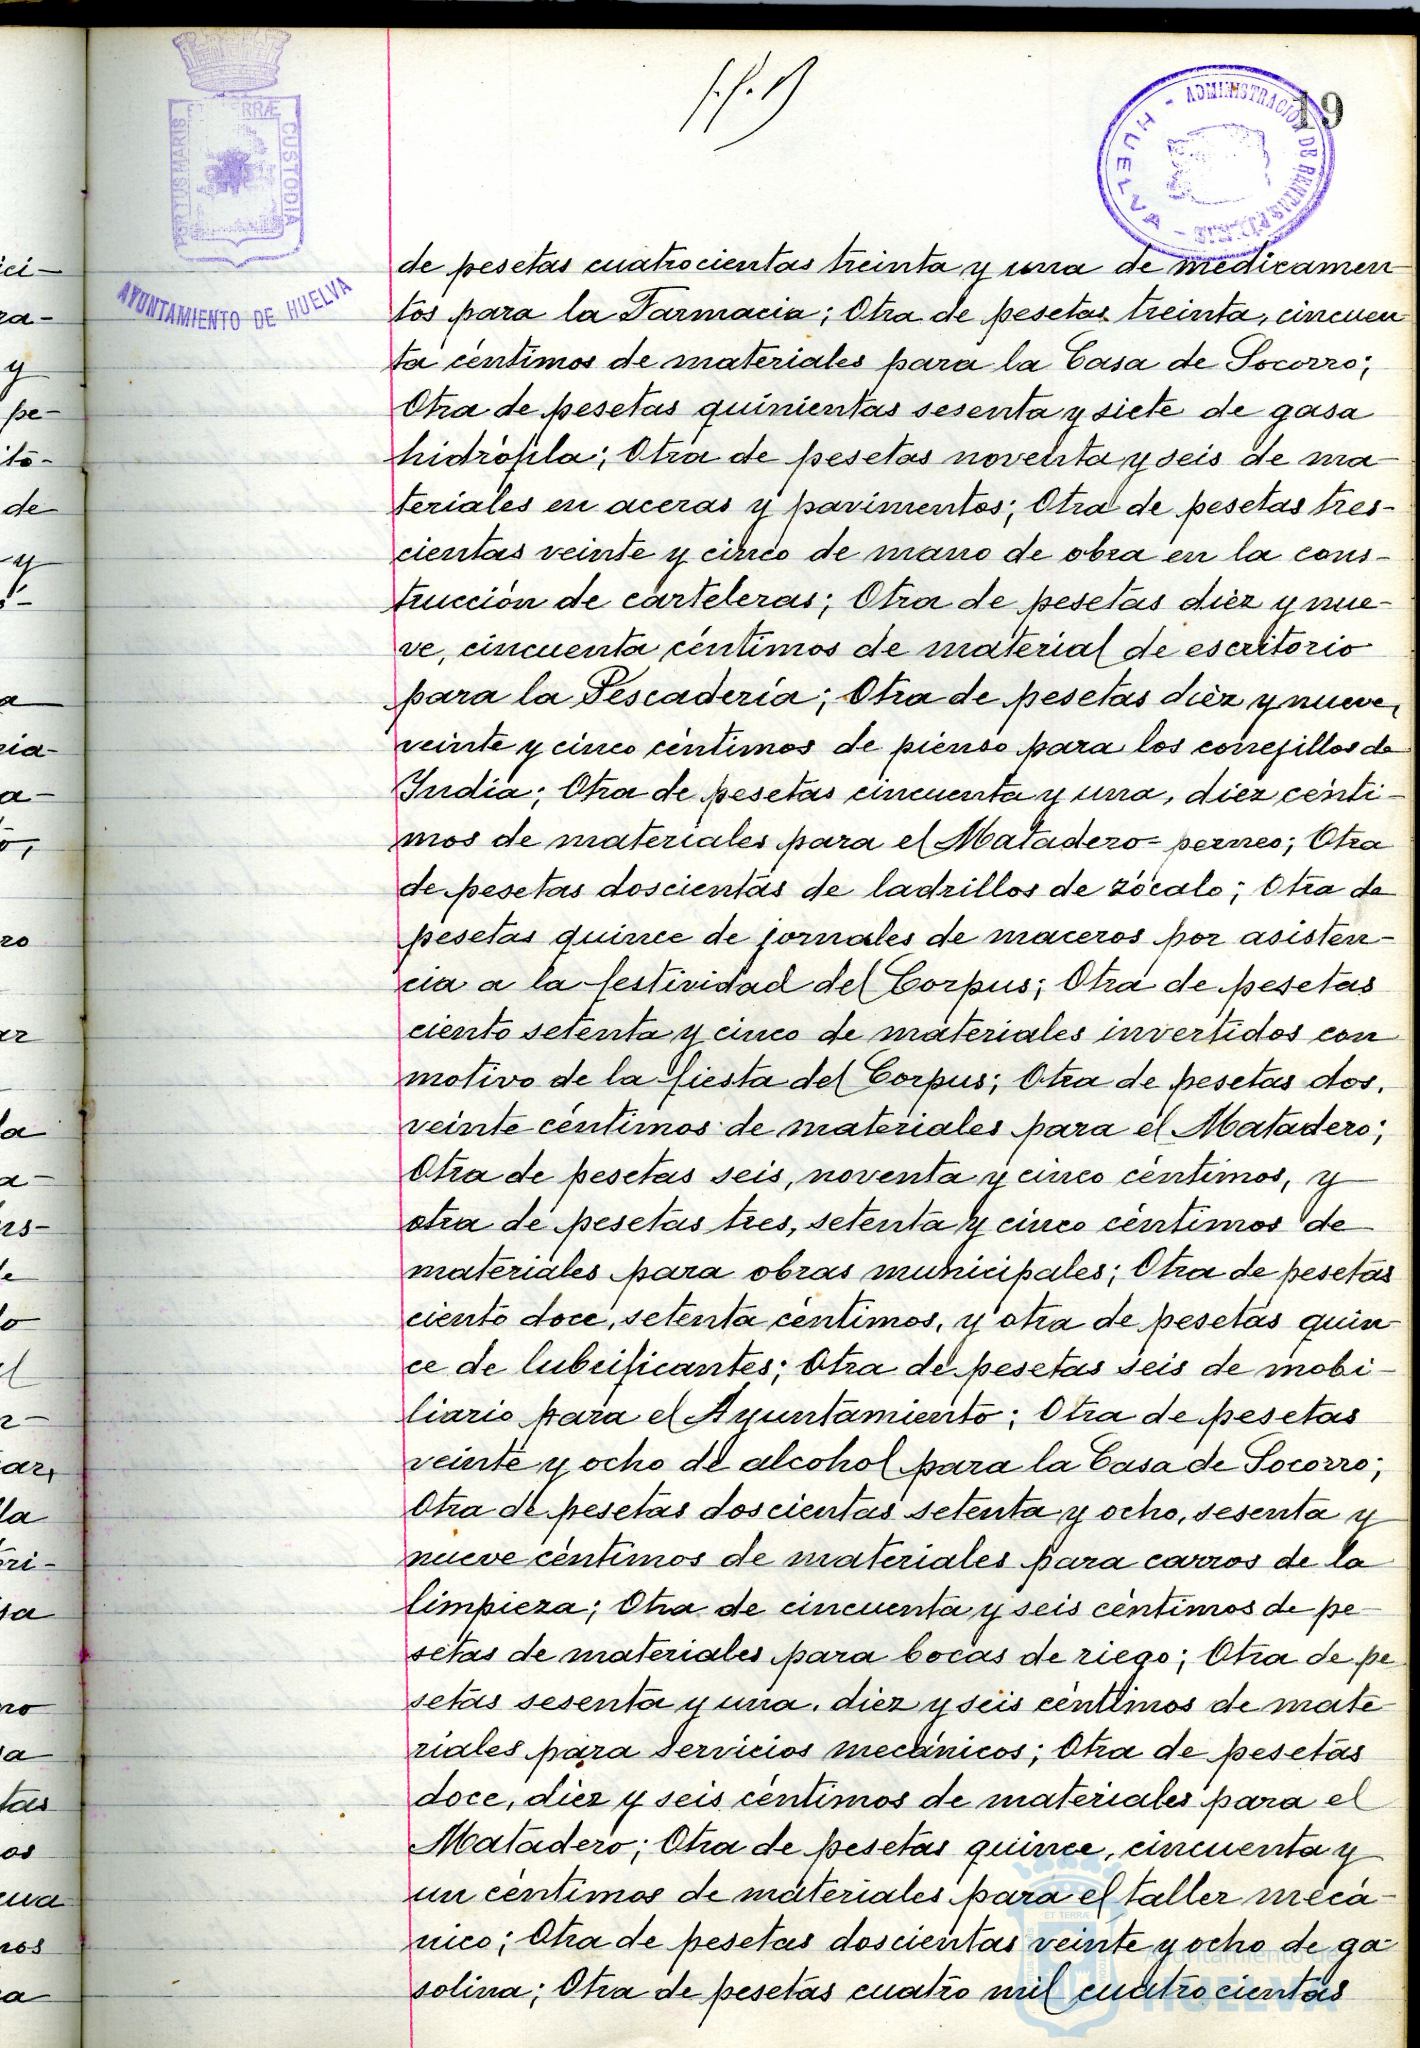 19
PORTUS MARIS ET TERRÆ CUSTODIA
AYUNTAMIENTO DE HUELVA
ADMINISTRACIÓN DE RENTAS PÚBLICAS - HUELVA -
de pesetas cuatrocientas treinta y una de medicamen
tos para la Farmacia; Otra de pesetas treinta, cincuen
ta céntimos de materiales para la Casa de Socorro;
Otra de pesetas quinientas sesenta y siete de gasa
hidrófila; Otra de pesetas noventa y seis de ma-
teriales en aceras y pavimentos; Otra de pesetas tres-
cientas veinte y cinco de mano de obra en la cons-
trucción de carteleras; Otra de pesetas diez y nue-
ve, cincuenta céntimos de material de escritorio
para la Pescadería; Otra de pesetas diez y nueve,
veinte y cinco céntimos de pienso para los conejillos de
India; Otra de pesetas cincuenta y una, diez cénti-
mos de materiales para el Matadero-perneo; Otra
de pesetas doscientas de ladrillos de zócalo; Otra de
pesetas quince de jornales de maceros por asisten-
cia a la festividad del Corpus; Otra de pesetas
ciento setenta y cinco de materiales invertidos con
motivo de la fiesta del Corpus; Otra de pesetas dos,
veinte céntimos de materiales para el Matadero;
Otra de pesetas seis, noventa y cinco céntimos, y
otra de pesetas tres, setenta y cinco céntimos de
materiales para obras municipales; Otra de pesetas
ciento doce, setenta céntimos, y otra de pesetas quin-
ce de lubrificantes; Otra de pesetas seis de mobi-
liario para el Ayuntamiento; Otra de pesetas
veinte y ocho de alcohol para la Casa de Socorro;
Otra de pesetas doscientas setenta y ocho, sesenta y
nueve céntimos de materiales para carros de la
limpieza; Otra de cincuenta y seis céntimos de pe-
setas de materiales para bocas de riego; Otra de pe
setas sesenta y una, diez y seis céntimos de mate
riales para servicios mecánicos; Otra de pesetas
doce, diez y seis céntimos de materiales para el
Matadero; Otra de pesetas quince, cincuenta y
un céntimos de materiales para el taller mecá-
nico; Otra de pesetas doscientas veinte y ocho de ga-
solina; Otra de pesetas cuatro mil cuatrocientas
Ayuntamiento de
HUELVA